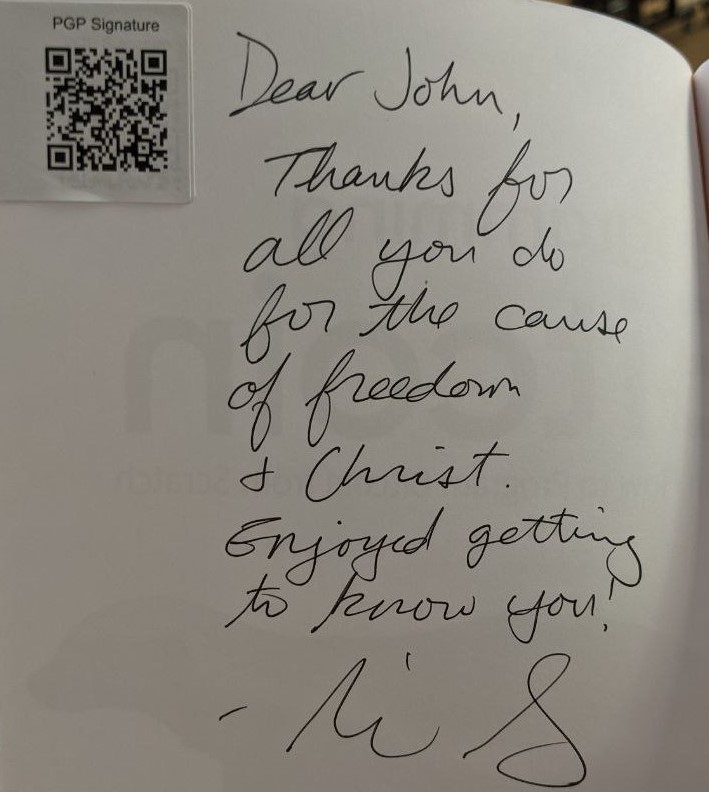 PGP Signature
Dear John,
Thanks for
all you do
for the cause
of freedom
& Christ.
Enjoyed getting
to know you!